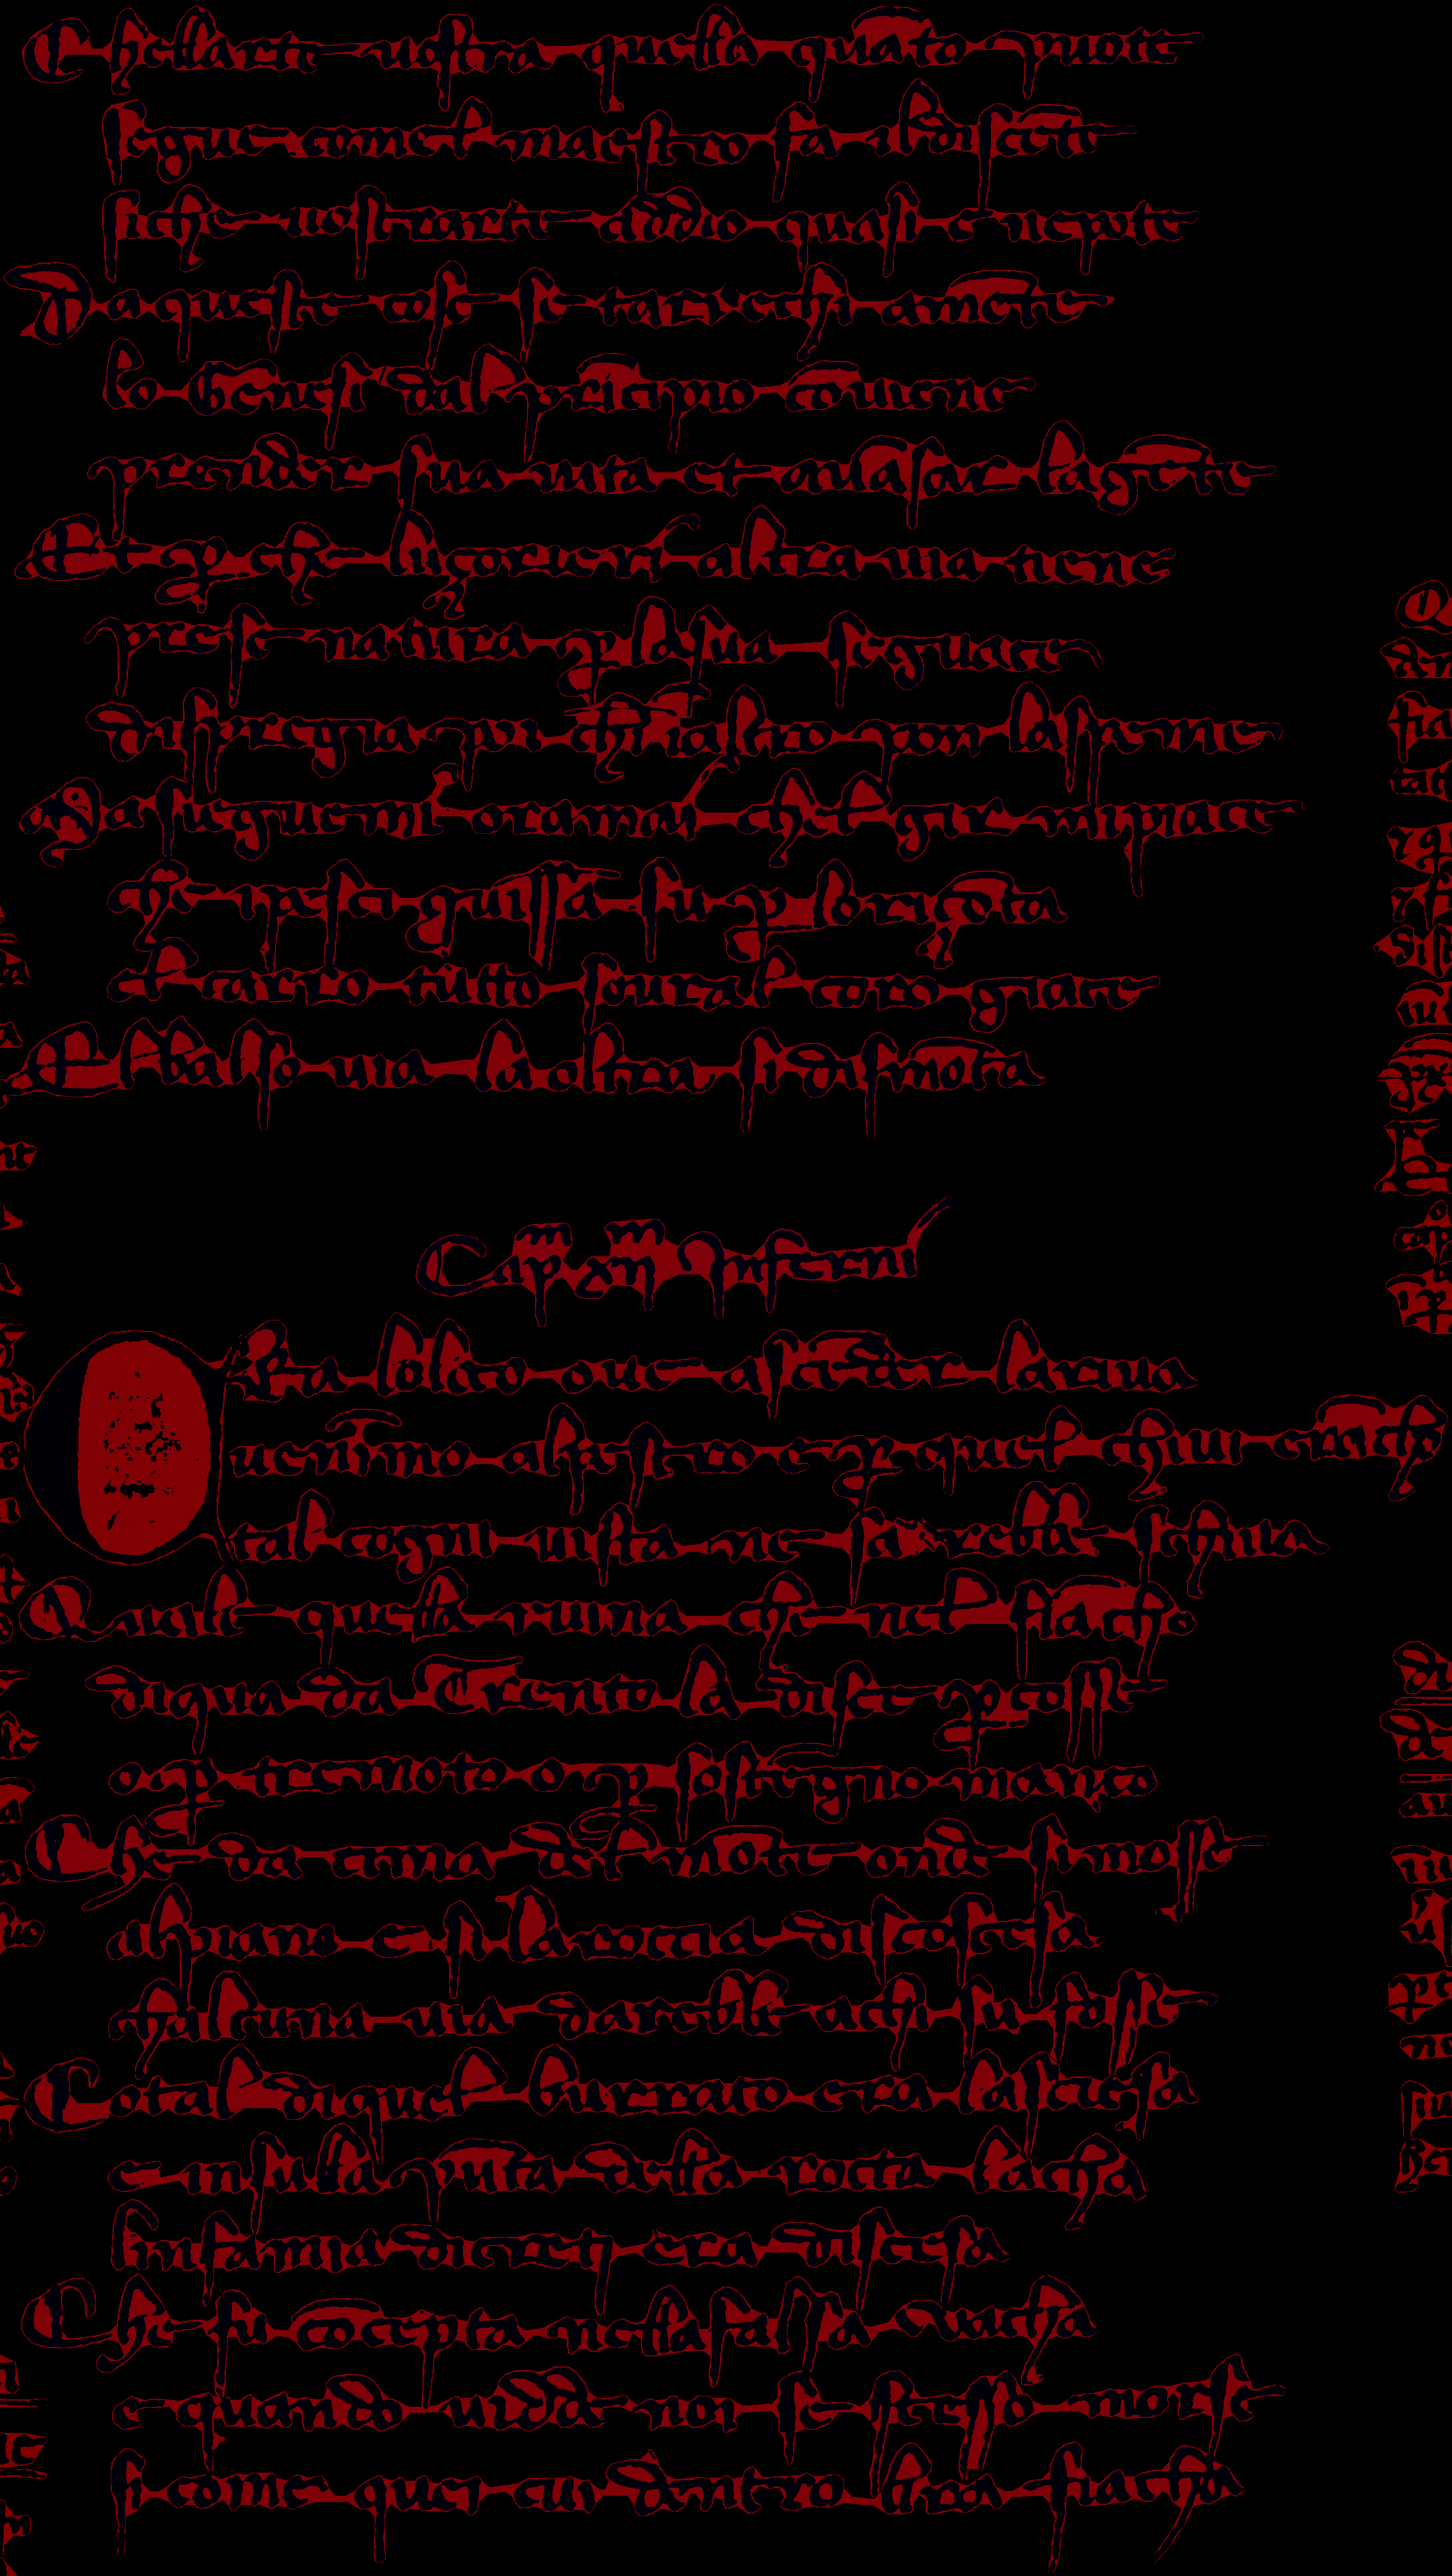 Chellarte uostra quella quāto puote
segue comel maestro fa ildiscēte
siche uostrarte addio quasi e nepote
Da queste cose se tarrechi amēte
lo Gēnesi dal prīcipio cōuiene
prender sua uita et auāsar lagēte
Et ꝑ che luçorieri altra uia tiene
prese natura ꝑ lasua seguace
dispregia poi chī īaltro pon laspeme
Ma sieguemi oramai chel gir mipiace
che ipesci guissā su ꝑ loriçōta
el carro tutto soural coro giace
El balso uia la oltra si dismōta
Capᵐ xijᵐ Inferni
Era loloco oue ascēder lariua
uenīmo alpestro e ꝑ quel chiui erācho
tal cogni uista ne sarebbe schiua
Quile quella ruina che nel fiācho
diqua da Trento la disce ꝑcosse
o ꝑ tremoto o ꝑ sostegno manco
Che da cima del mōte onde simosse
alpiano e si la roccia discoscesa
chalcuna uia darebbe achi su fosse
Cotal diquel burrato era lascesa
e insulla pūta della rocta lacha
linfamia dicreti era discesa
Che fu cōcepta nella falsa uacha
e quando uidde noi se stesso morse
si come quei cui dentro lira fiacha